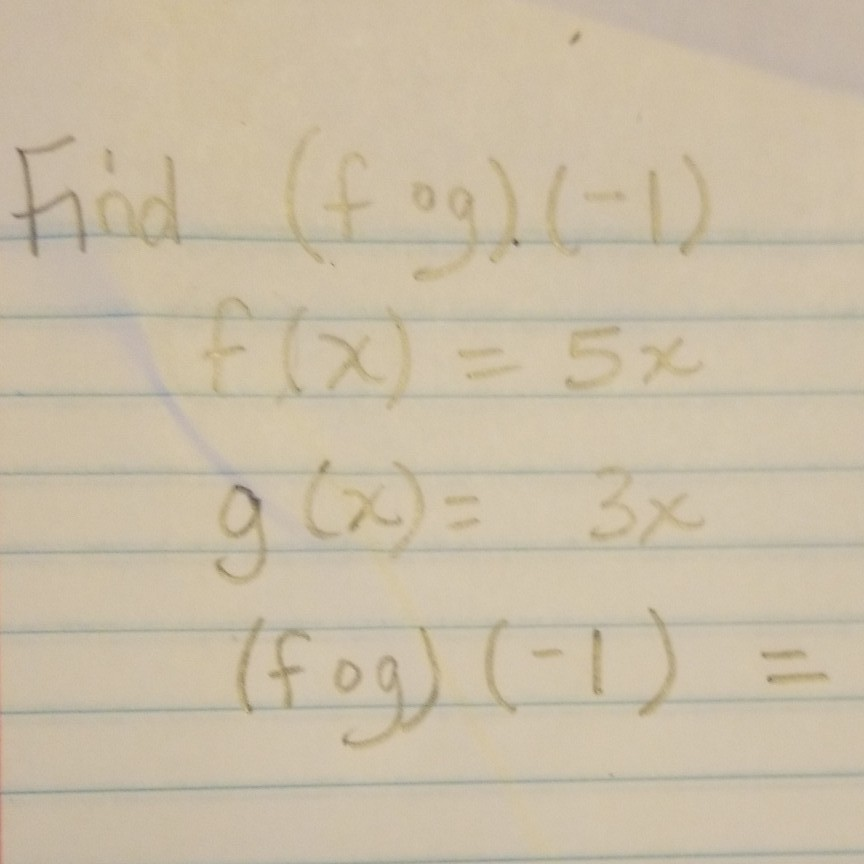 Find (f o g) (-1)
f(x) = 5x
g(x) = 3x
(f o g) (-1) =